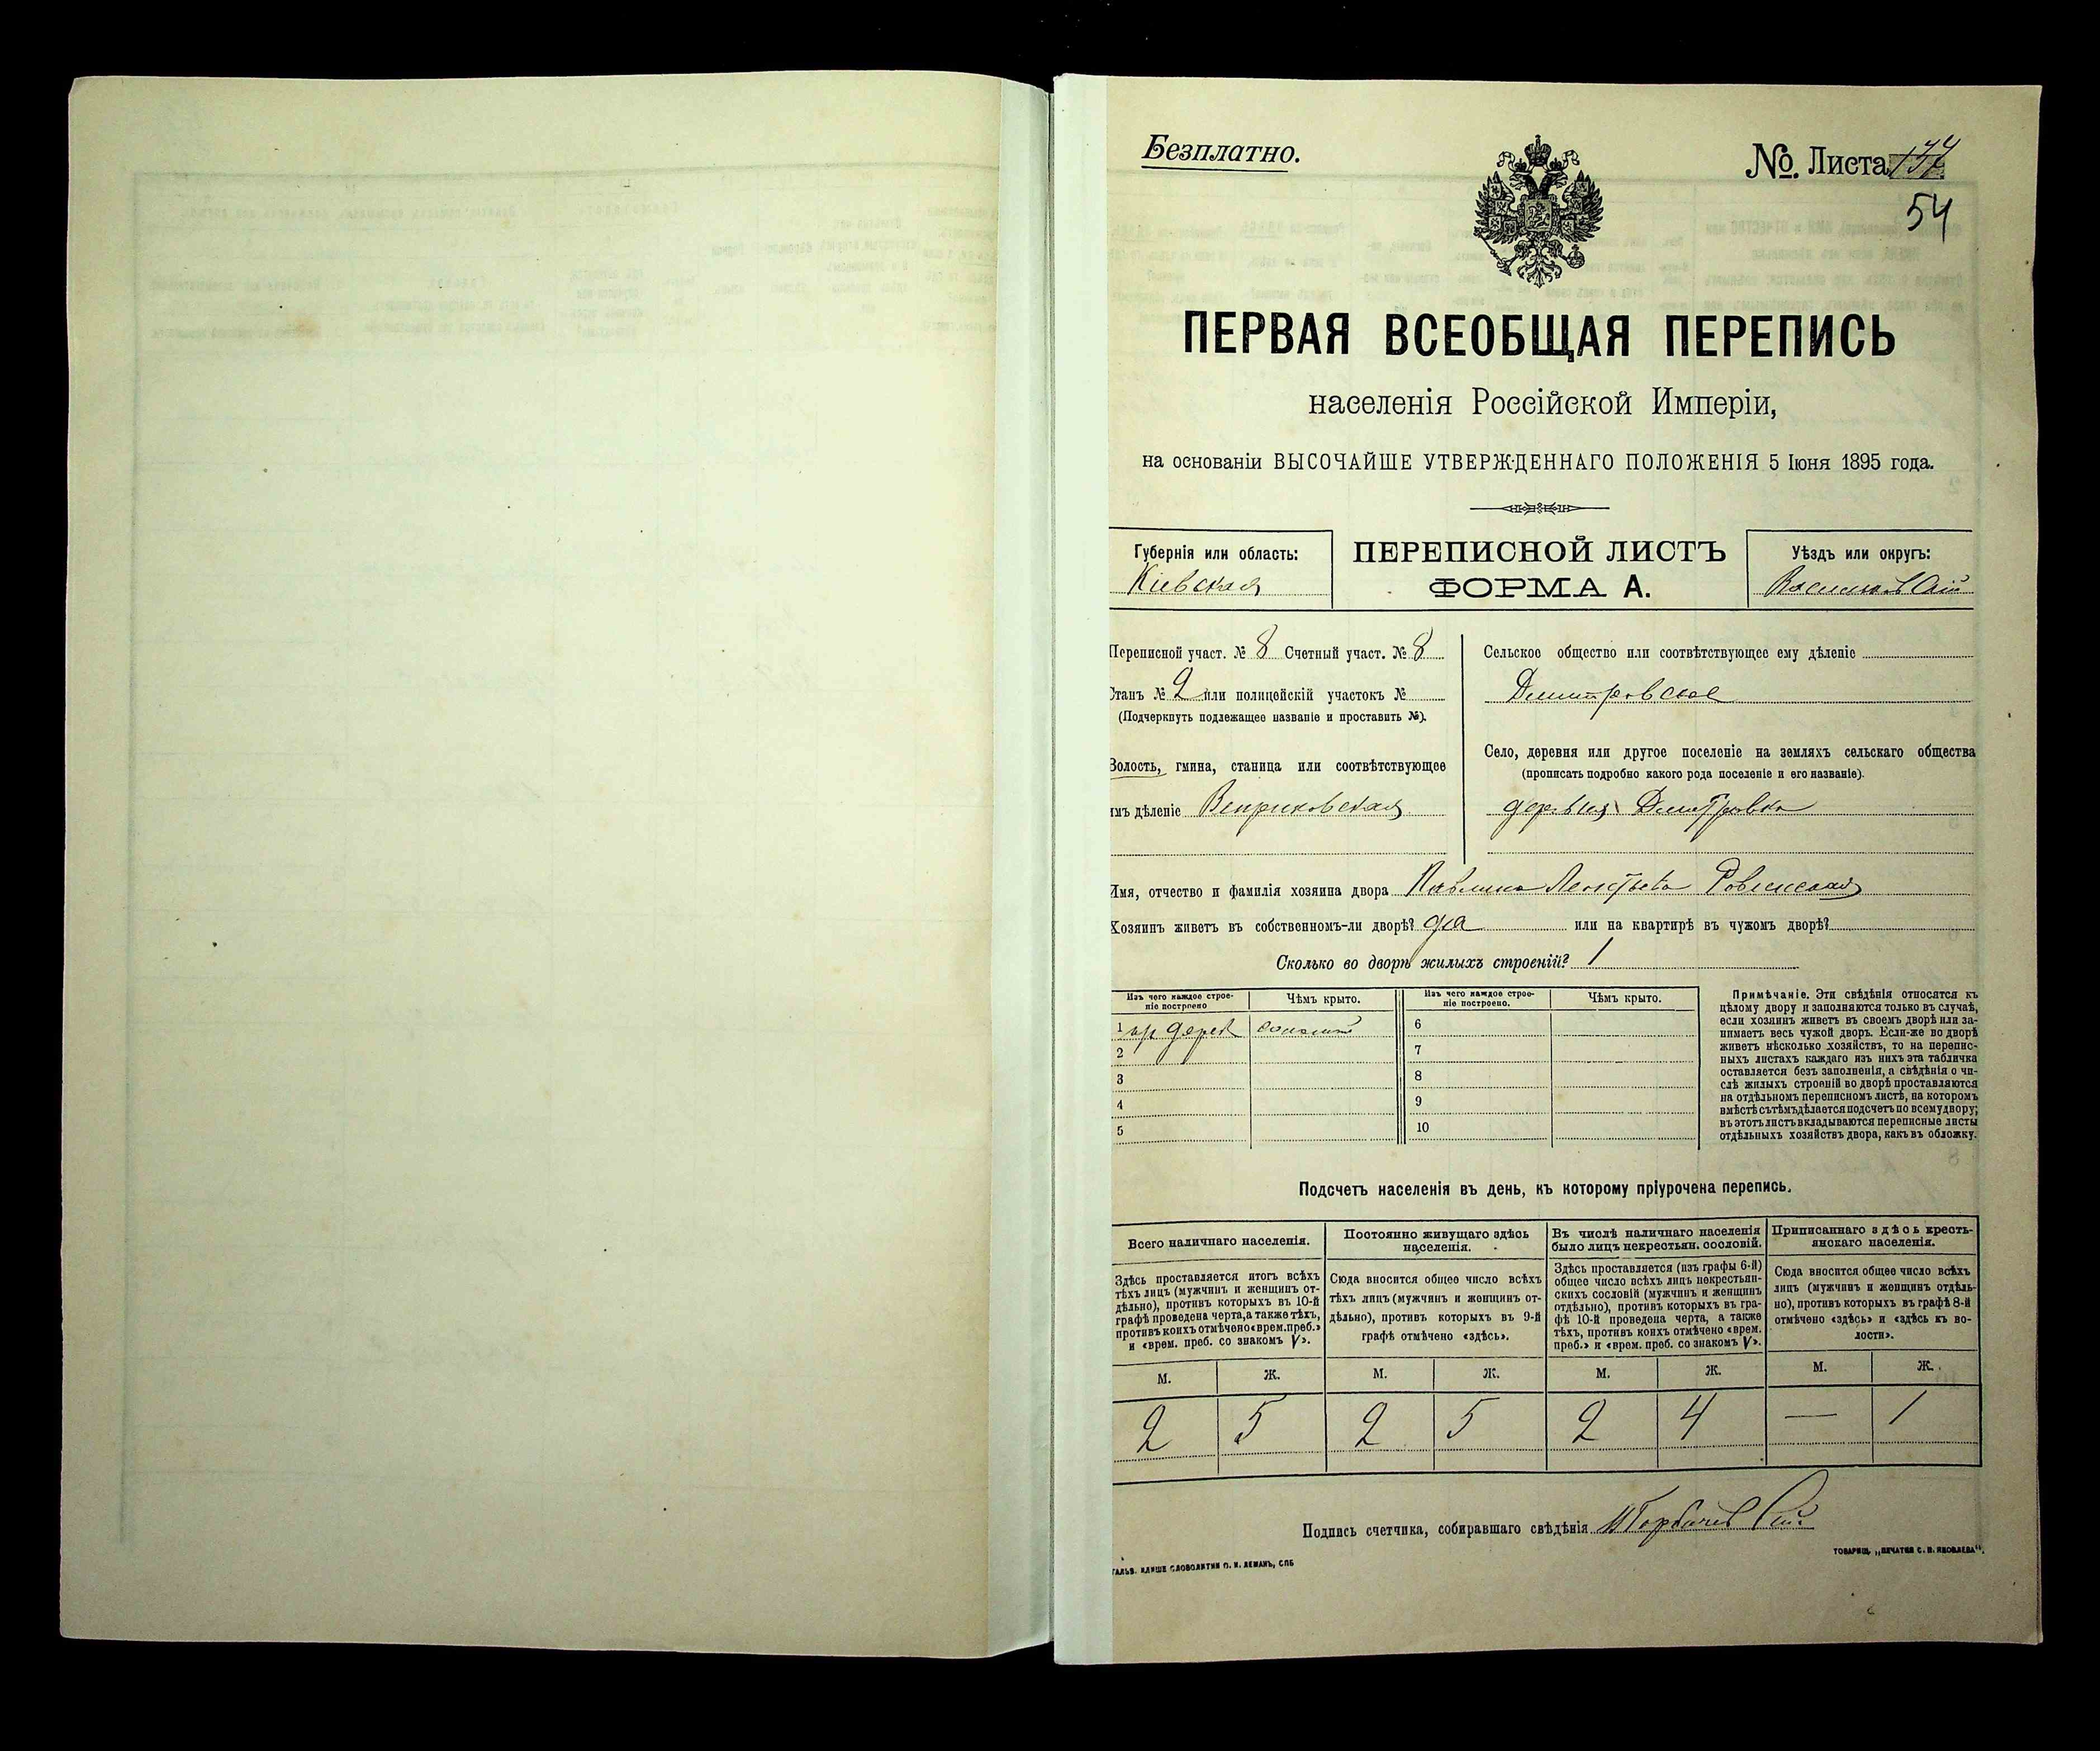 Безплатно.
№. Листа
54
ПЕРВАЯ ВСЕОБЩАЯ ПЕРЕПИСЬ
населенія Россійской Имперіи,
на основаніи ВЫСОЧАЙШЕ УТВЕРЖДЕННАГО ПОЛОЖЕНІЯ 5 Іюня 1895 года.
Губернія или область:
Кіевская
ПЕРЕПИСНОЙ ЛИСТЪ
ФОРМА А.
Уѣздъ или округъ:
Васильковскій
Переписной участ. № 8 Счетный участ. № 8
Станъ № 2 или полицейскій участокъ №
(Подчеркнуть подлежащее названіе и проставить №).
Волость, гмина, станица или соотвѣтствующее
имъ дѣленіе Веприковская
Сельское общество или соотвѣтствующее ему дѣленіе
Дмитровское
Село, деревня или другое поселеніе на земляхъ сельскаго общества
(прописать подробно какого рода поселеніе и его названіе).
деревня Дмитровка
Имя, отчество и фамилія хозяина двора Павлина Леонтьева Ровинская
Хозяинъ живетъ въ собственномъ-ли дворѣ? да или на квартирѣ въ чужомъ дворѣ?
Сколько во дворѣ жилыхъ строеній? 1
Изъ чего каждое строе-
ніе построено
Чѣмъ крыто.
1 дерев соломой
2
3
4
5
Изъ чего каждое строе-
ніе построено.
Чѣмъ крыто.
6
7
8
9
10
Примѣчаніе. Эти свѣдѣнія относятся къ
цѣлому двору и заполняются только въ случаѣ,
если хозяинъ живетъ въ своемъ дворѣ или за-
нимаетъ весь чужой дворъ. Если-же во дворѣ
живетъ нѣсколько хозяйствъ, то на перепис-
ныхъ листахъ каждаго изъ нихъ эта табличка
оставляется безъ заполненія, а свѣдѣнія о чи-
слѣ жилыхъ строеній во дворѣ проставляются
на отдѣльномъ переписномъ листѣ, на которомъ
вмѣстѣ съ тѣмъ дѣлается подсчетъ по всему двору;
въ этотъ листъ вкладываются переписные листы
отдѣльныхъ хозяйствъ двора, какъ въ обложку.
Подсчетъ населенія въ день, къ которому пріурочена перепись.
Всего наличнаго населенія.
Здѣсь проставляется итогъ всѣхъ
тѣхъ лицъ (мужчинъ и женщинъ от-
дѣльно), противъ которыхъ въ 10-й
графѣ проведена черта, а также тѣхъ,
противъ коихъ отмѣчено «врем. преб.»
и «врем. преб. со знакомъ V».
Постоянно живущаго здѣсь
населенія.
Сюда вносится общее число всѣхъ
тѣхъ лицъ (мужчинъ и женщинъ от-
дѣльно), противъ которыхъ въ 9-й
графѣ отмѣчено «здѣсь».
Въ числѣ наличнаго населенія
было лицъ некрестьян. сословій.
Здѣсь проставляется (изъ графы 6-й)
общее число всѣхъ лицъ некрестьян-
скихъ сословій (мужчинъ и женщинъ
отдѣльно), противъ которыхъ въ гра-
фѣ 10-й проведена черта, а также
тѣхъ, противъ коихъ отмѣчено «врем.
преб.» и «врем. преб. со знакомъ V».
Приписаннаго здѣсь кресть-
янскаго населенія.
Сюда вносится общее число всѣхъ
лицъ (мужчинъ и женщинъ отдѣль-
но), противъ которыхъ въ графѣ 8-й
отмѣчено «здѣсь» и «здѣсь къ во-
лости».
М. Ж. М. Ж. М. Ж. М. Ж.
2 5 2 5 2 4 — 1
Подпись счетчика, собиравшаго свѣдѣнія
ГАЛЬВ. КЛИШЕ СЛОВОЛИТНИ О. И. ЛЕМАНЪ, СПБ
ТОВАРИЩ. „ПЕЧАТНЯ С. П. ЯКОВЛЕВА".